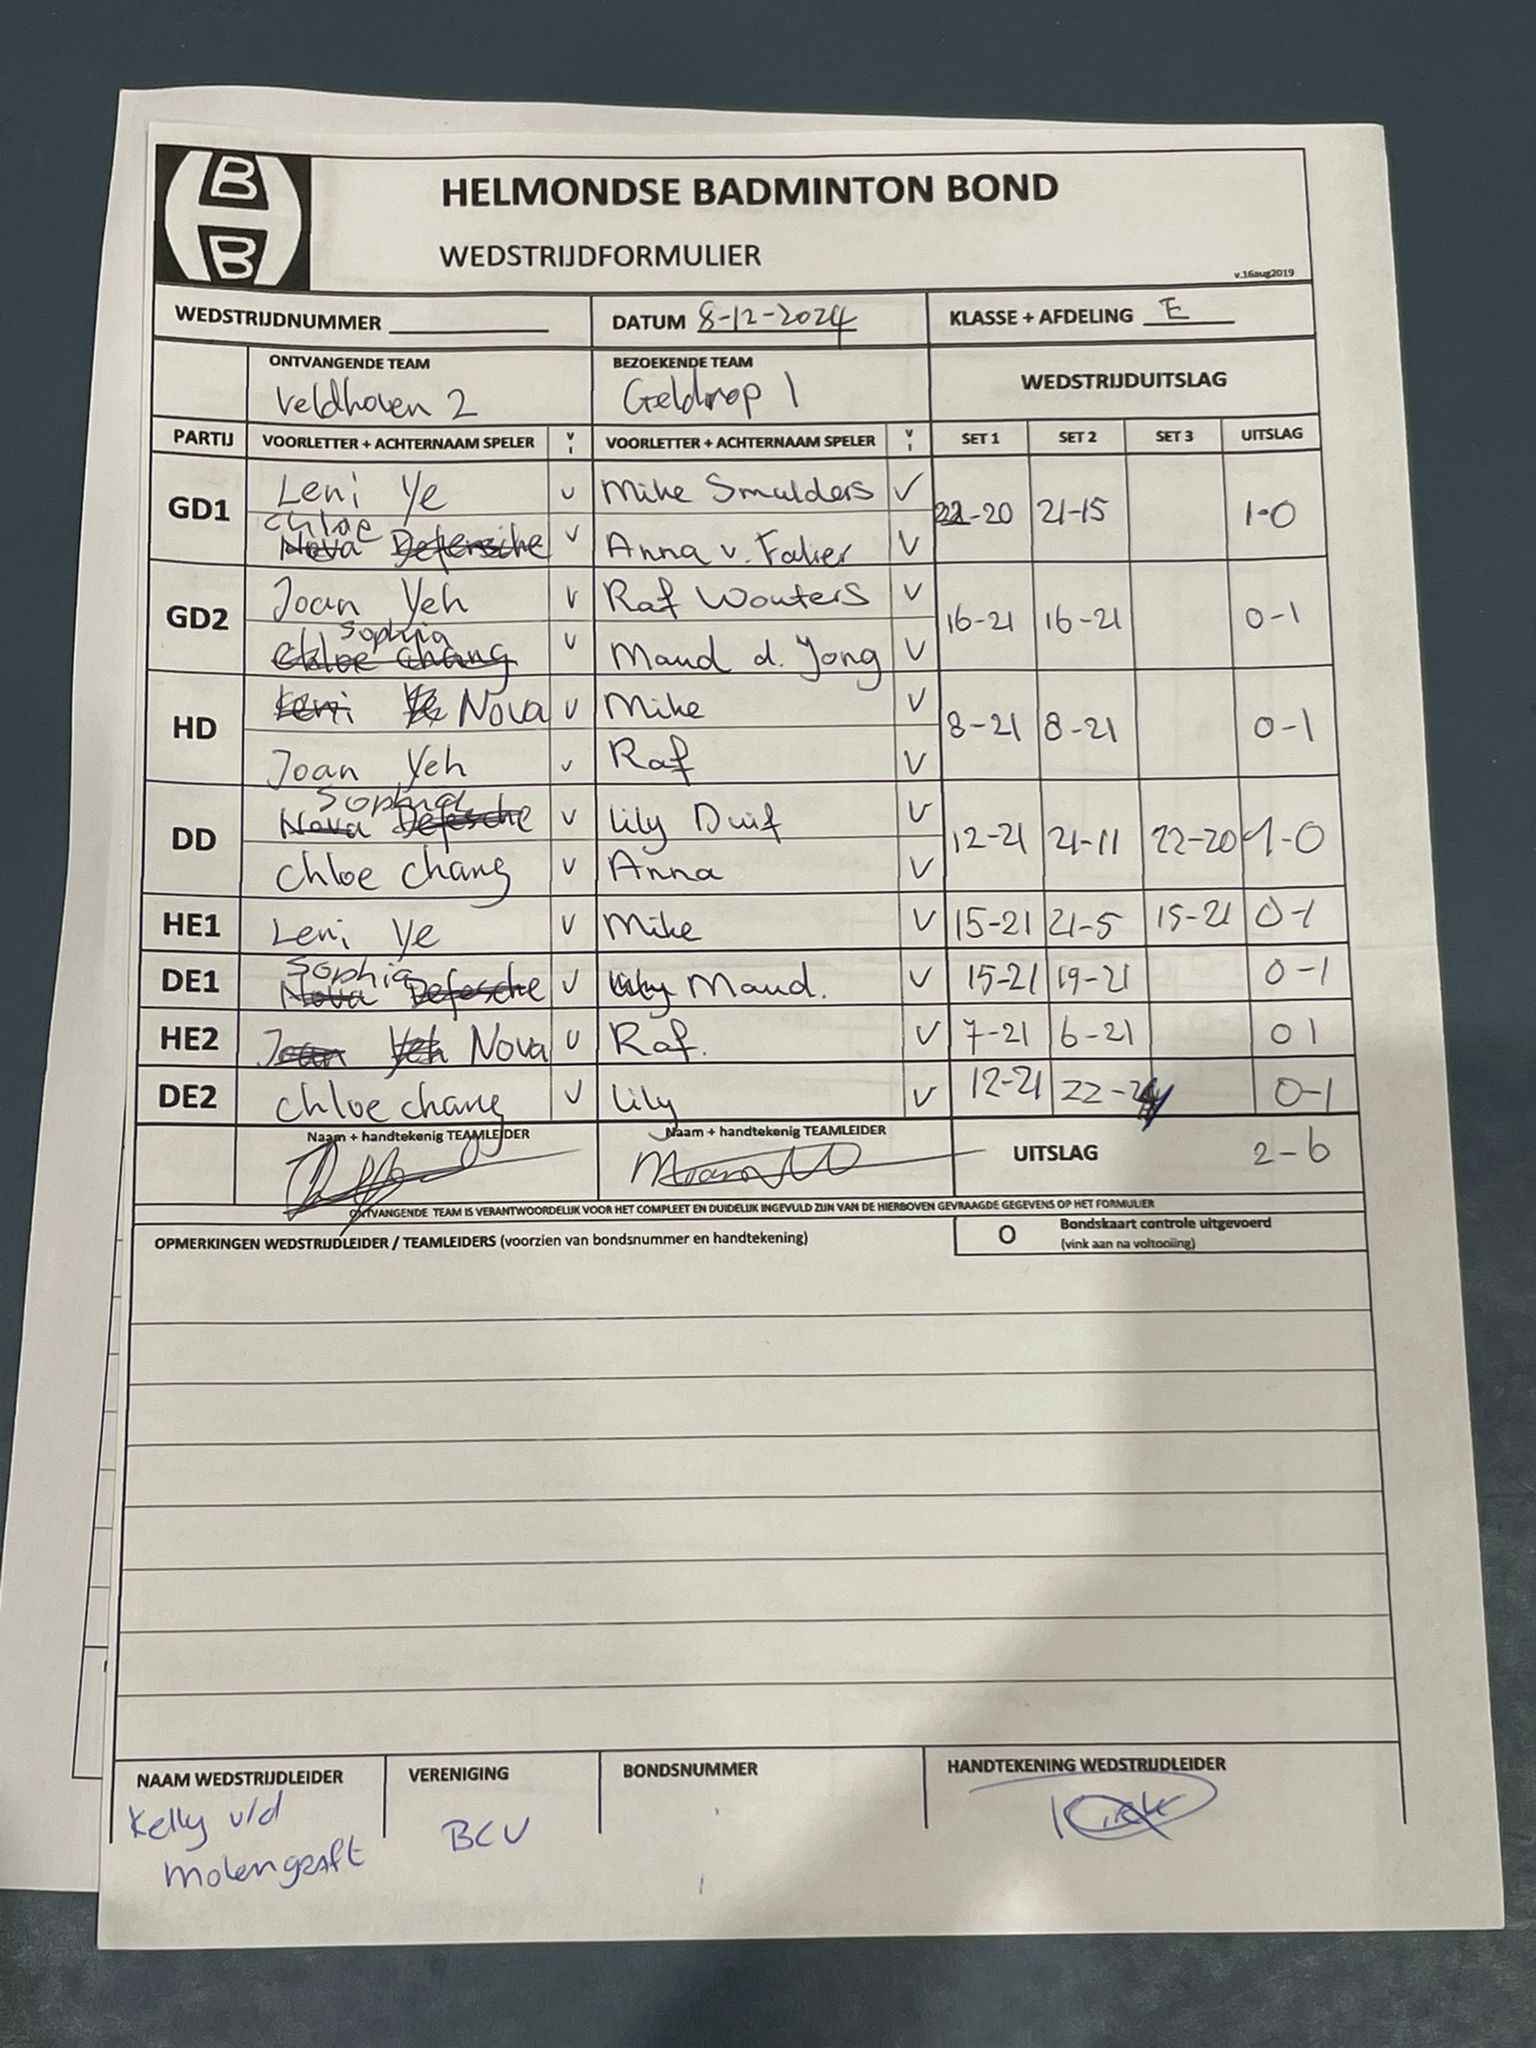 HELMONDSE BADMINTON BOND
WEDSTRIJDFORMULIER
v.16aug2019
WEDSTRIJDNUMMER DATUM 8-12-2024 KLASSE + AFDELING E
ONTVANGENDE TEAM BEZOEKENDE TEAM WEDSTRIJDUITSLAG
Veldhoven 2 Geldrop 1
PARTIJ VOORLETTER + ACHTERNAAM SPELER V I VOORLETTER + ACHTERNAAM SPELER V I SET 1 SET 2 SET 3 UITSLAG
GD1 Leni Ye v Mike Smulders v 22-20 21-15 1-0
Chloe
Nova v Anna v. v
GD2 Joan Yeh v Raf Wouters v 16-21 16-21 0-1
Sophia
Chloe Chang v Maud d. Jong v
HD Leni Ye Nova v Mike v 8-21 8-21 0-1
Joan Yeh v Raf v
Sophia
DD Nova Defesche v Lily Duif v 12-21 21-11 22-20 1-0
Chloe Chang v Anna v
HE1 Leni Ye v Mike v 15-21 21-5 15-21 0-1
Sophia
DE1 Nova Defesche v Lily Maud. v 15-21 19-21 0-1
HE2 Joan Yeh Nova v Raf. v 7-21 6-21 0 1
DE2 Chloe Chang v Lily v 12-21 22-24 0-1
Naam + handtekenig TEAMLEIDER Naam + handtekenig TEAMLEIDER UITSLAG 2-6
ONTVANGENDE TEAM IS VERANTWOORDELIJK VOOR HET COMPLEET EN DUIDELIJK INGEVULD ZIJN VAN DE HIERBOVEN GEVRAAGDE GEGEVENS OP HET FORMULIER
OPMERKINGEN WEDSTRIJDLEIDER / TEAMLEIDERS (voorzien van bondsnummer en handtekening) O Bondskaart controle uitgevoerd
(vink aan na voltooiing)
NAAM WEDSTRIJDLEIDER VERENIGING BONDSNUMMER HANDTEKENING WEDSTRIJDLEIDER
Kelly v/d BCV
Molengraft